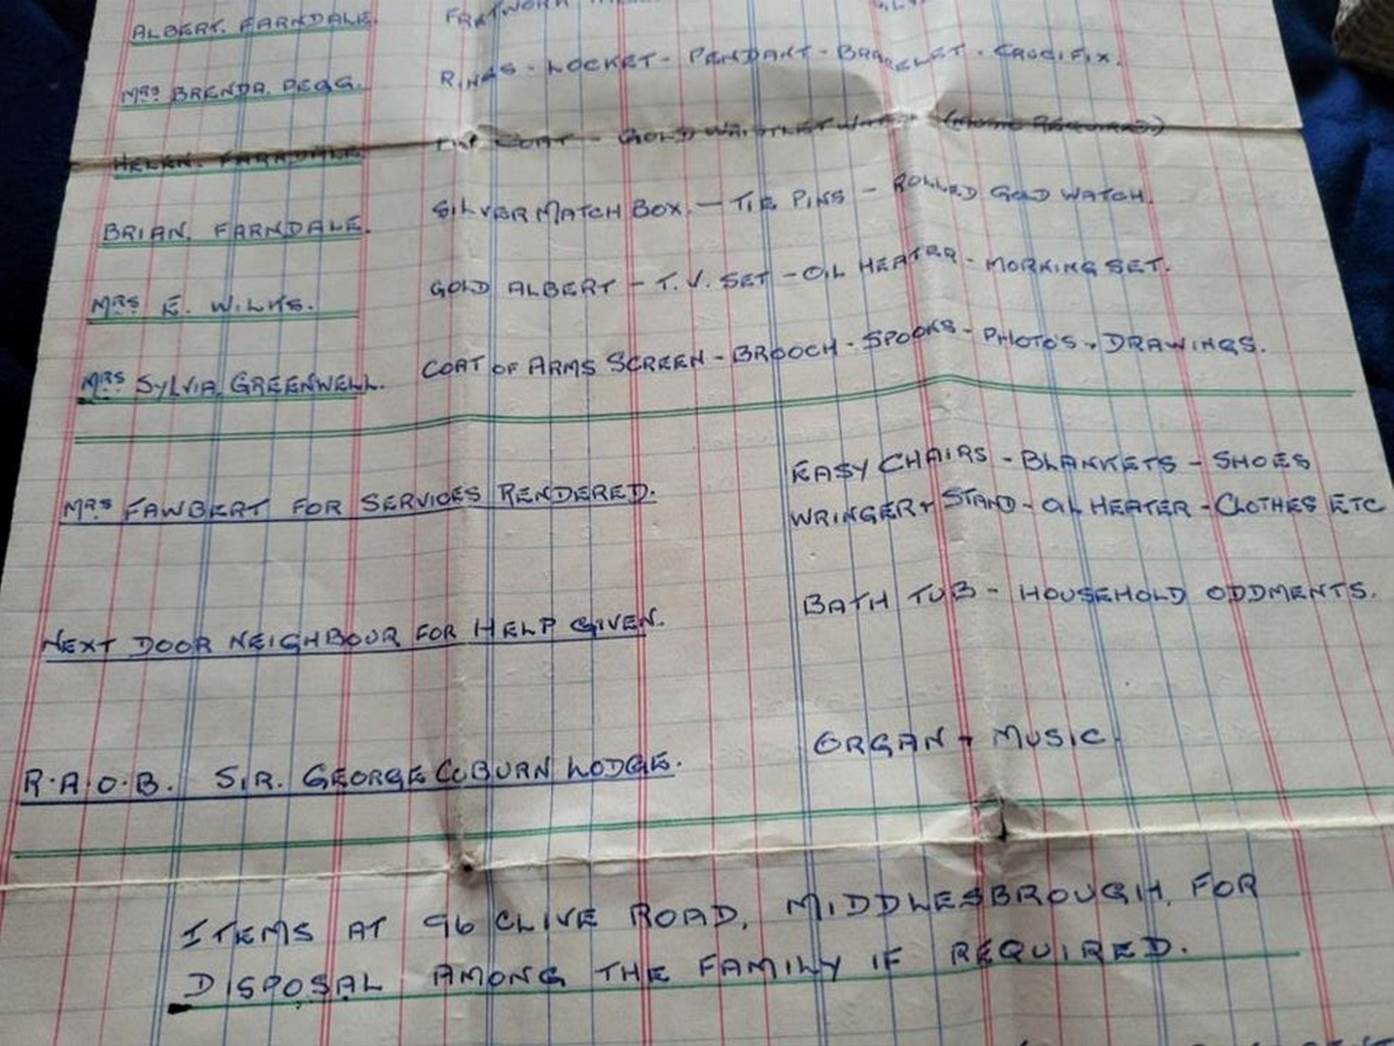 ALBERT. FARNDALE.
MRS BRENDA. PEGG. RINGS - LOCKET - PENDANT - BRACELET - CRUCIFIX.
HELEN. FARNDALE. COAT - GOLD WRISTLET WATCH (
BRIAN. FARNDALE. SILVER MATCH BOX. - TIE PINS - ROLLED GOLD WATCH.
MRS E. WILKS. GOLD ALBERT - T.V. SET - OIL HEATER - MORKING SET.
MRS SYLVIA. GREENWELL. COAT OF ARMS SCREEN - BROOCH - SPOOKS - PHOTO'S + DRAWINGS.
MRS FAWBERT FOR SERVICES RENDERED. EASY CHAIRS - BLANKETS - SHOES
WRINGER + STAND - OIL HEATER - CLOTHES ETC
NEXT DOOR NEIGHBOUR FOR HELP GIVEN. BATH TUB - HOUSEHOLD ODDMENTS.
R.A.O.B. SIR. GEORGE COBURN LODGE. ORGAN + MUSIC.
ITEMS AT 96 CLIVE ROAD, MIDDLESBROUGH, FOR
DISPOSAL AMONG THE FAMILY IF REQUIRED.